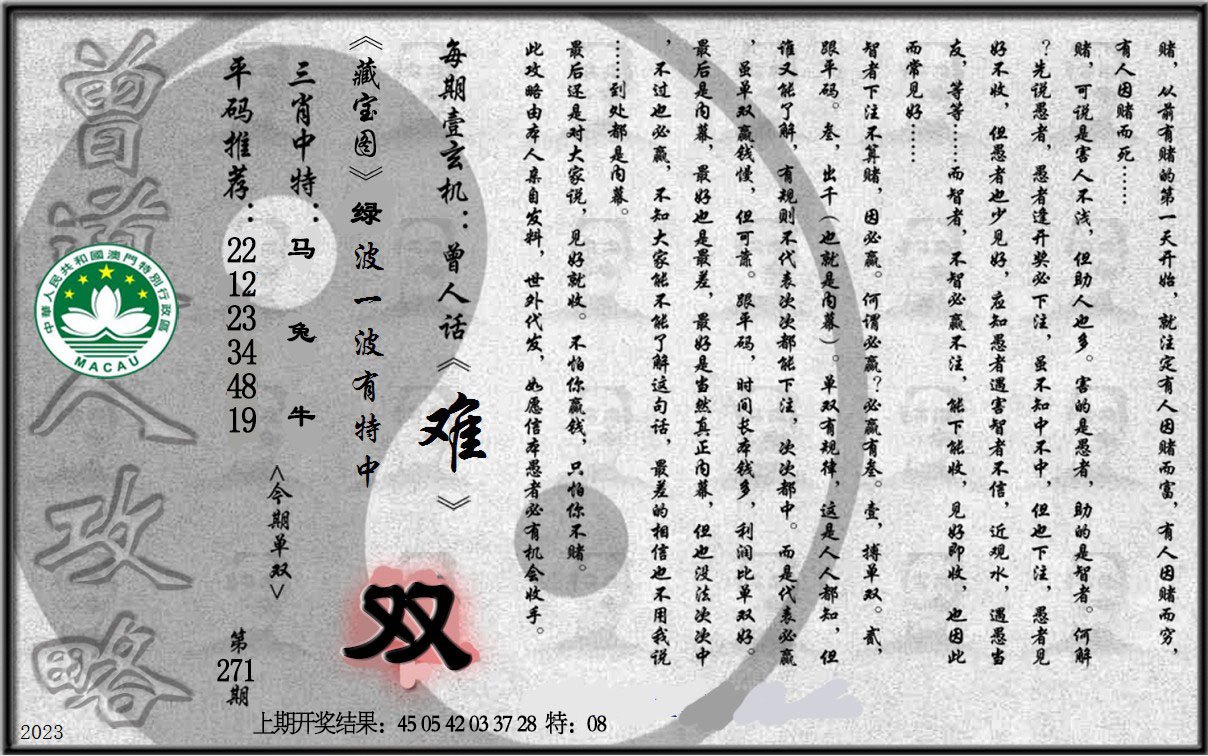 赌，从前有赌的第一天开始，就注定有人因赌而富，有人因赌而穷，
有人因赌而死……
赌，可说是害人不浅，但助人也多。害的是愚者，助的是智者。何解
？先说愚者，愚者逢开奖必下注，虽不知中不中，但也下注，愚者见
好不收，但愚者也少见好，应知愚者遇害智者不信，近观水，遇愚当
友，等等……而智者，不智必赢不注，能下能收，见好即收，也因此
而常见好……
智者下注不算赌，因必赢。何谓必赢？必赢有叁。壹，搏单双。贰，
跟平码。叁，出千（也就是内幕）。单双有规律，这是人人都知，但
谁又能了解，有规则不代表次次都能下注，次次都中。而是代表必赢
，虽单双赢钱慢，但可靠。跟平码，时间长本钱多，利润比单双好。
最后是内幕，最好也是最差，最好是当然真正内幕，但也没法次次中
，不过也必赢，不知大家能不能了解这句话，最差的相信也不用我说
……到处都是内幕。
最后还是对大家说，见好就收。不怕你赢钱，只怕你不赌。
此攻略由本人亲自发料，世外代发，如愿信本愚者必有机会收手。
每期壹玄机：曾人话《难》
《藏宝图》绿波一波有特中
双
三肖中特：马兔牛
<今期单双>
平码推荐：22 12 23 34 48 19
第271期
曾道人攻略
中華人民共和國澳門特別行政區
MACAU
上期开奖结果：45 05 42 03 37 28 特：08
2023